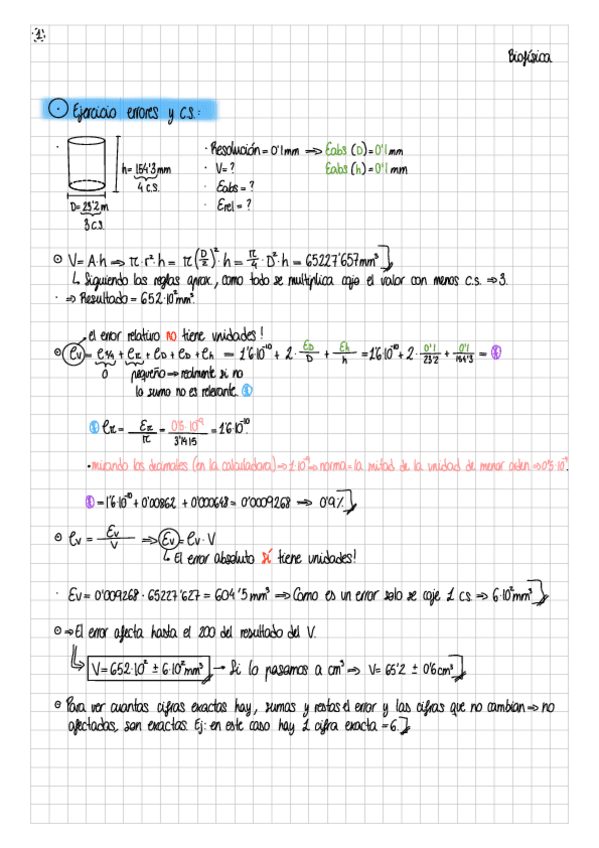 ·1·
Biofísica
· Ejercicio errores y C.S.:
· Resolución = 0'1 mm ⟹ Eabs (D) = 0'1 mm
h = 154'3 mm · V = ? Eabs (h) = 0'1 mm
4 C.S. · Eabs = ?
D = 23'2 m · Erel = ?
3 C.S.
⊙ V = A·h ⟹ π·r²·h = π(D/2)²·h = π/4·D²·h = 65227'657mm³
↳ Siguiendo las reglas aprox., como todo se multiplica cojo el valor con menos c.s. ⟹ 3.
· ⟹ Resultado = 652·10²mm³
el error relativo no tiene unidades!
⊙ eᵥ = e_π/4 + e_π + e_D + e_D + e_h = 1'6·10⁻¹⁰ + 2·E_D/D + E_h/h = 1'6·10⁻¹⁰ + 2·0'1/23'2 + 0'1/154'3 =
0 pequeño ⟶ realmente si no
lo sumo no es relevante.
e_π = E_π/π = 0'5·10⁻⁹/3'1415 = 1'6·10⁻¹⁰
· mirando los decimales (en la calculadora) ⟹ 1·10⁻⁹ ⟹ norma = la mitad de la unidad de menor orden ⟹ 0'5·10⁻⁹
= 1'6·10⁻¹⁰ + 0'00862 + 0'000648 = 0'0009268 ⟹ 0'9%
⊙ eᵥ = Eᵥ/V ⟹ Eᵥ = eᵥ·V
↳ El error absoluto sí tiene unidades!
· Eᵥ = 0'009268 · 65227'627 = 604'5 mm³ ⟹ Como es un error solo se coje 1 c.s. ⟹ 6·10²mm³
⊙ ⟹ El error afecta hasta el 200 del resultado del V.
V = 652·10² ± 6·10²mm³ ⟶ Si lo pasamos a cm³ ⟹ V = 65'2 ± 0'6cm³
⊙ Para ver cuantas cifras exactas hay, sumas y restas el error y las cifras que no cambian ⟹ no
afectadas, son exactas. Ej: en este caso hay 1 cifra exacta = 6.